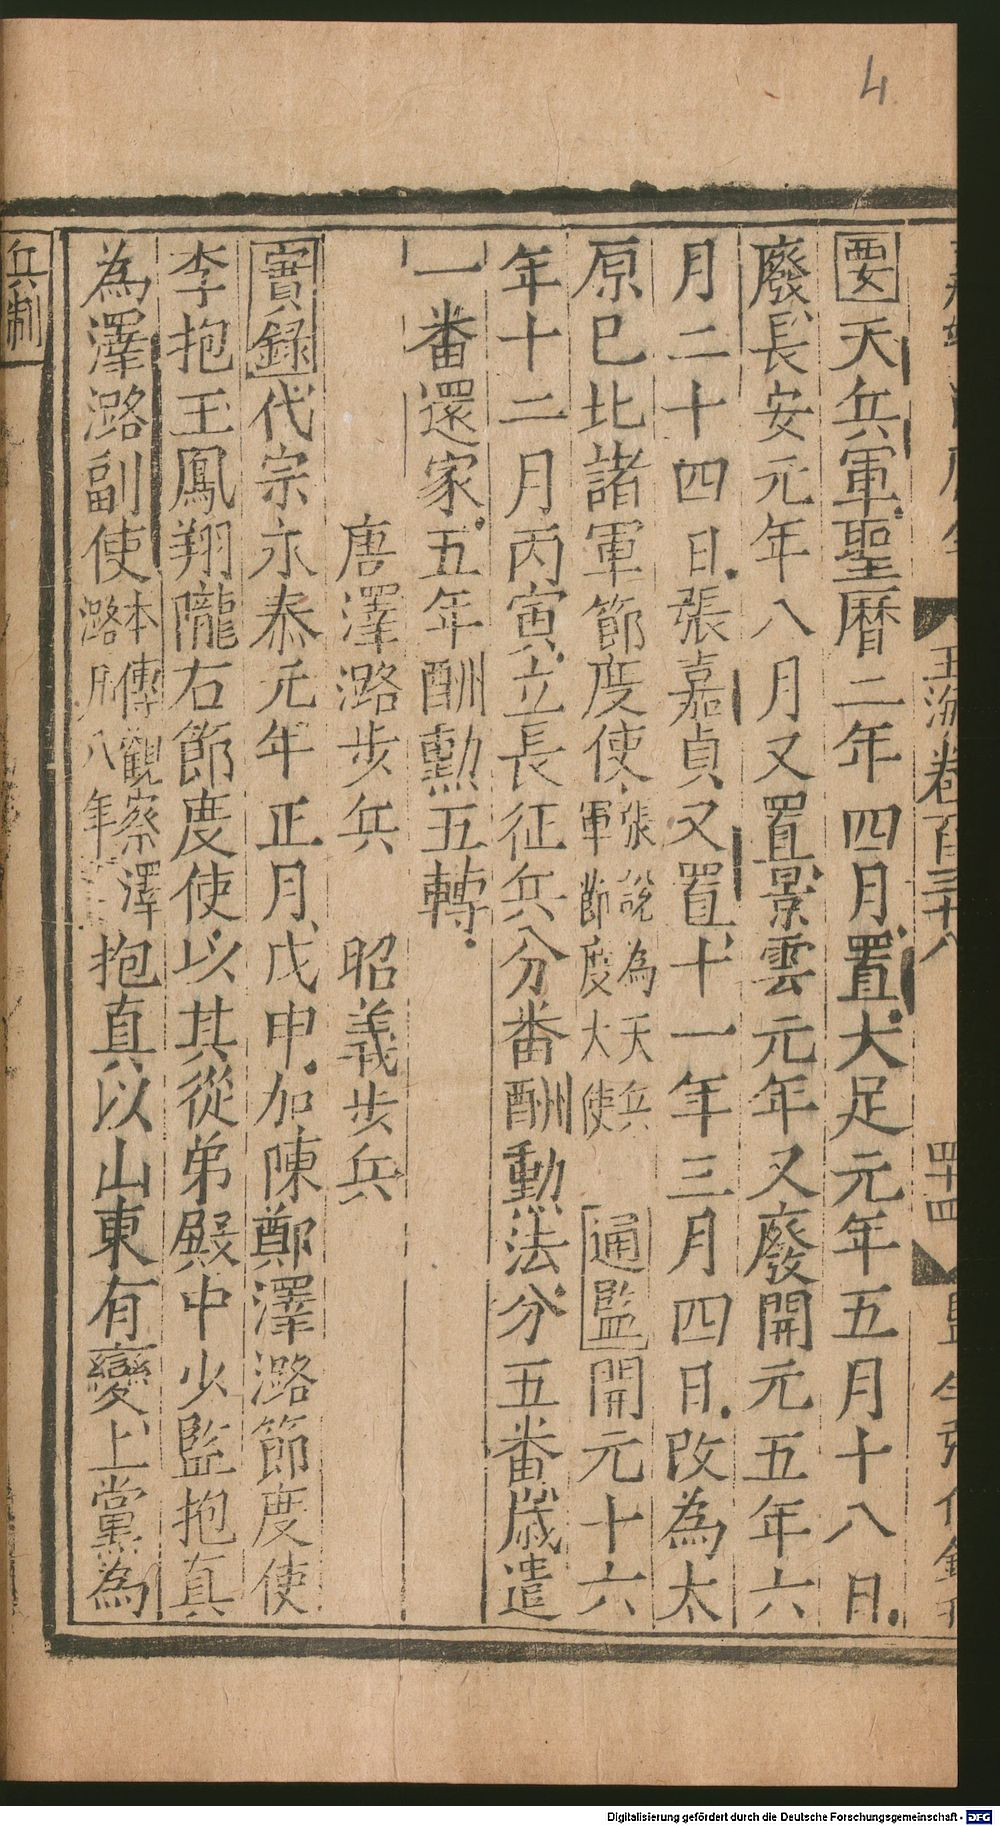 4
玉海卷百三十八
四十四
要天兵軍聖曆二年四月置大足元年五月十八日
廢長安元年八月又置景雲元年又廢開元五年六
月二十四日張嘉貞又置十一年三月四日改為太
原已北諸軍節度使張說為天兵軍節度大使通監開元十六
年十二月丙寅立長征兵分番酬勳法分五番歲遣
一番還家五年酬勳五轉
唐澤潞步兵 昭義步兵
實錄代宗永泰元年正月戊申加陳鄭澤潞節度使
李抱玉鳳翔隴右節度使以其從弟殿中少監抱真
為澤潞副使本傳觀察澤潞州八年抱真以山東有變上黨為
兵制
Digitalisierung gefördert durch die Deutsche Forschungsgemeinschaft - DFG